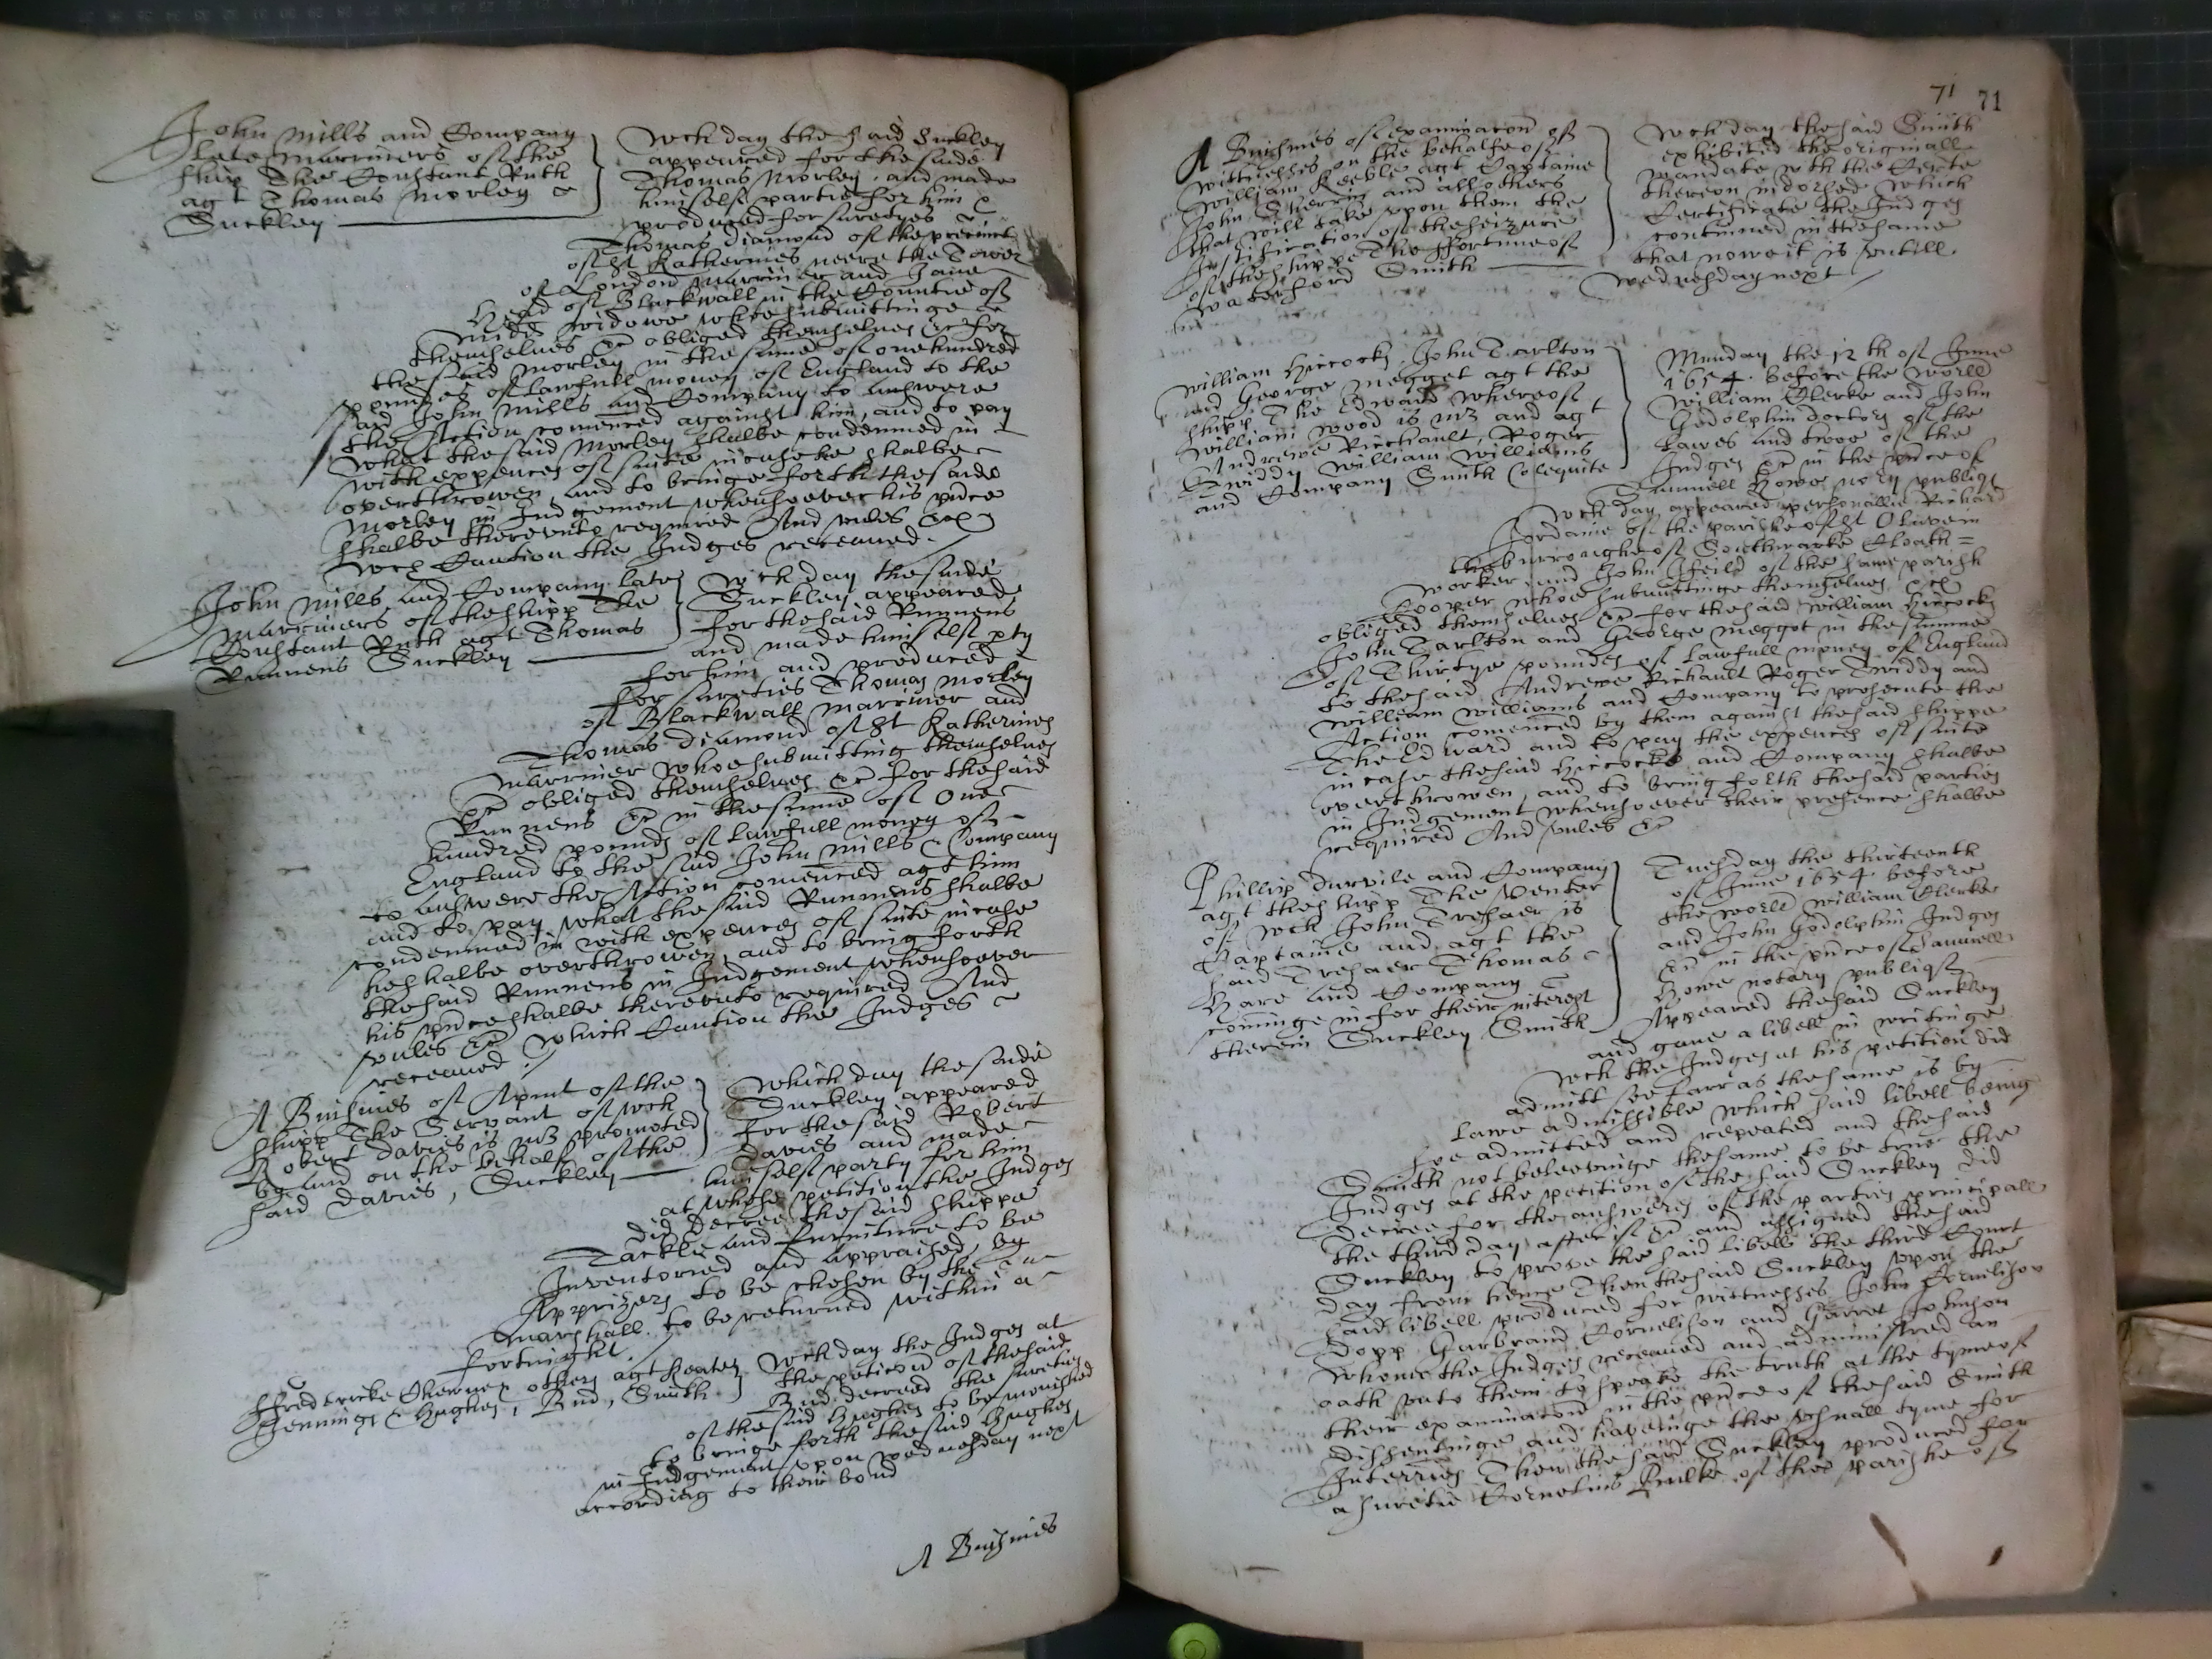 John Mills and Company
late Marriners of the
shipp The Constant Ruth
agt Thomas Morley
Suckley
Wch day the said Suckley
appeared for the saide
Thomas Morley, and made
himself partie for him &
produced for suretyes
Thomas Diamond of the precinct
of St Katherines neere the Tower
of London Marriner and Jane
of Blackwall in the Countie of
Midd widowe whoe submittinge
themselves &c obliged themselves &c for
the said Morley in the sume of one hundred
poundes of lawfull money of England to the
said John Mills and Company to answere
the Action comenced against him, and to pay
what the said Morley shalbe condemned in
with expences of suite in case he shalbe
overthrowen, and to bringe forth the saide
Morley in Judgement whensoever his pnce
shalbe thereunto required And unles &c
wch Caution the Judges receaued.
John Mills and Company late
Marriners of the shipp The
Constant Ruth agt Thomas
Runnens Suckley
Wch day the saide
Suckley appeared
for the said Runnens
and made himself pty
for him and produced
for sureties Thomas Morley
of Blackwall Marriner and
Thomas Diamond of St Katherines
Marriner whoe submitting themselves
&c obliged themselves &c for the said
Runnens &c in the sume of One
hundred pounds of lawfull money of
England to the said John Mills & Company
to answere the Action comenced agt him
and to pay what the said Runnens shalbe
condemned in with expences of suite in case
he shalbe overthrowen, and to bring forth
the said Runnens in Judgement whensoever
his pnce shalbe thereunto required And
unles &c which Caution the Judges
receaued
A Buisines of Apmt of the
shipp The Servant of wch
Robert Davies is Mr promoted
by and on the behalf of the
said Davies, Suckley
Which day the saide
Suckley appeared
for the said Robert
Davies and made
himself party for him
at whose petition the Judges
did decree the said shippe
Tackle and furniture to be
Inventoried and appraised, by
Apprizers to be chosen by the
Marshall to be returned within a
fortnight.
ffredericke others agt Keate
Jennings & Hughes, Bud, Smith
Wch day the Judges at
the peticon of the said
Bud decreed the sureties
of the said Hughes to be monished
to bringe forth the said Hughes
in Judgement upon wednesday next
according to their bond
A Buisines
71 71
A Buisines of examinacon of
wittnesses on the behalfe of
William Keeble agt Captaine
John Sherrin and all others
that will take upon them the
Justification of the seizure
of the shippe The ffortune of
Waterford Smith
Wch day the said Smith
exhibited the originall
mandate wth the
thereon indorsed which
Certificate the Judges
continued in the same
that nowe it is untill
wednesday next
William Hiccocks, John Tarlton
and George Megget agt the
shipp The Edward whereof
William Wood is Mr and agt
Andrewe Rickault, Roger
Twiddy William Williams
and Company Smith Colequite
Munday the 12th of June
1654. before the worll
William Clerke and John
Godolphin doctors of the
Lawes and twoe of the
Judges &c in the pnce of
Samuell Howe nory publiq
Wch day appeared personallie Richard
Jordaine of the parishe of St Olaves in
the burroughe of Southwarke Cloath=
worker, and John Ifeild of the same parish
Cooper whoe submittinge themselves &c
obliged themselves &c for the said William Hiccocks
John Tarlton and George Meggot in the summe
of Thirtye poundes of lawfull money of England
to the said Andrewe Rickault Roger Twiddy and
William Williams and Company to prosecute the
Action comenced by them against the said shippe
The Edward and to pay the expences of suite
in case the said Hiccocks and Company shalbe
overthrowen, and to bring forth the said parties
in Judgement whensoever their presence shalbe
required And unles &c
Phillip Durvile and Company
agt the shipp The Venter
of wch John Treshaer is
Captaine and agt the
said Treshaer Thomas
Hare and Company
comminge in for their interest
therein Suckley Smith
Tuesday the thirteenth
of June 1654 before
the worll William Clerke
and John Godolphin Judges
&c in the pnce of Samuell
Howe notary publiq
Appeared the said Suckley
and gave a libell in writinge
wch the Judges at his petition did
admitt soe farr as the same is by
Lawe admissible which said libell being
soe admitted and repeated and the said
Smith not beleevinge the same to be true the
Judges at the petition of the said Suckley did
decree for the answers of the parties principall
the third day after if &c and assigned the said
Suckley to prove the said libell the third Court
day from hence Then the said Suckley upon the
said libell produced for wittnesses John Cornelison
Dopp Garbrand Cornelison and Garret Johnson
whome the Judges receaued and administred an
oath unto them to speake the truth at the tyme of
their examinacon in the pnce of the said Smith
dissentinge and haveinge the usuall tyme for
Interries Then the said Suckley produced for
a suretie Cornelius of the parishe of